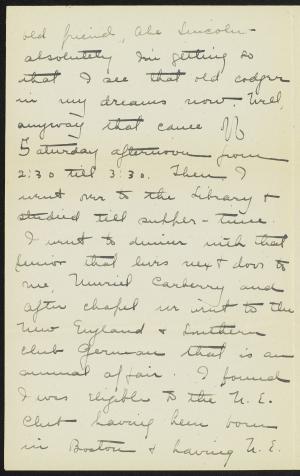 old friend, Abe Lincoln -
absolutely I'm getting so
that I see that old codger
in my dreams now. Well,
anyway that came off
Saturday afternoon from
2:30 till 3:30. Then I
went over to the Library &
studied till supper-time.
I went to dinner with that
junior that lives next door to
me, Muriel Carberry and
after chapel we went to the
New England & Southern
Club German that is an
annual affair. I found
I was eligible to the N. E.
Club having been born
in Boston & having N. E.